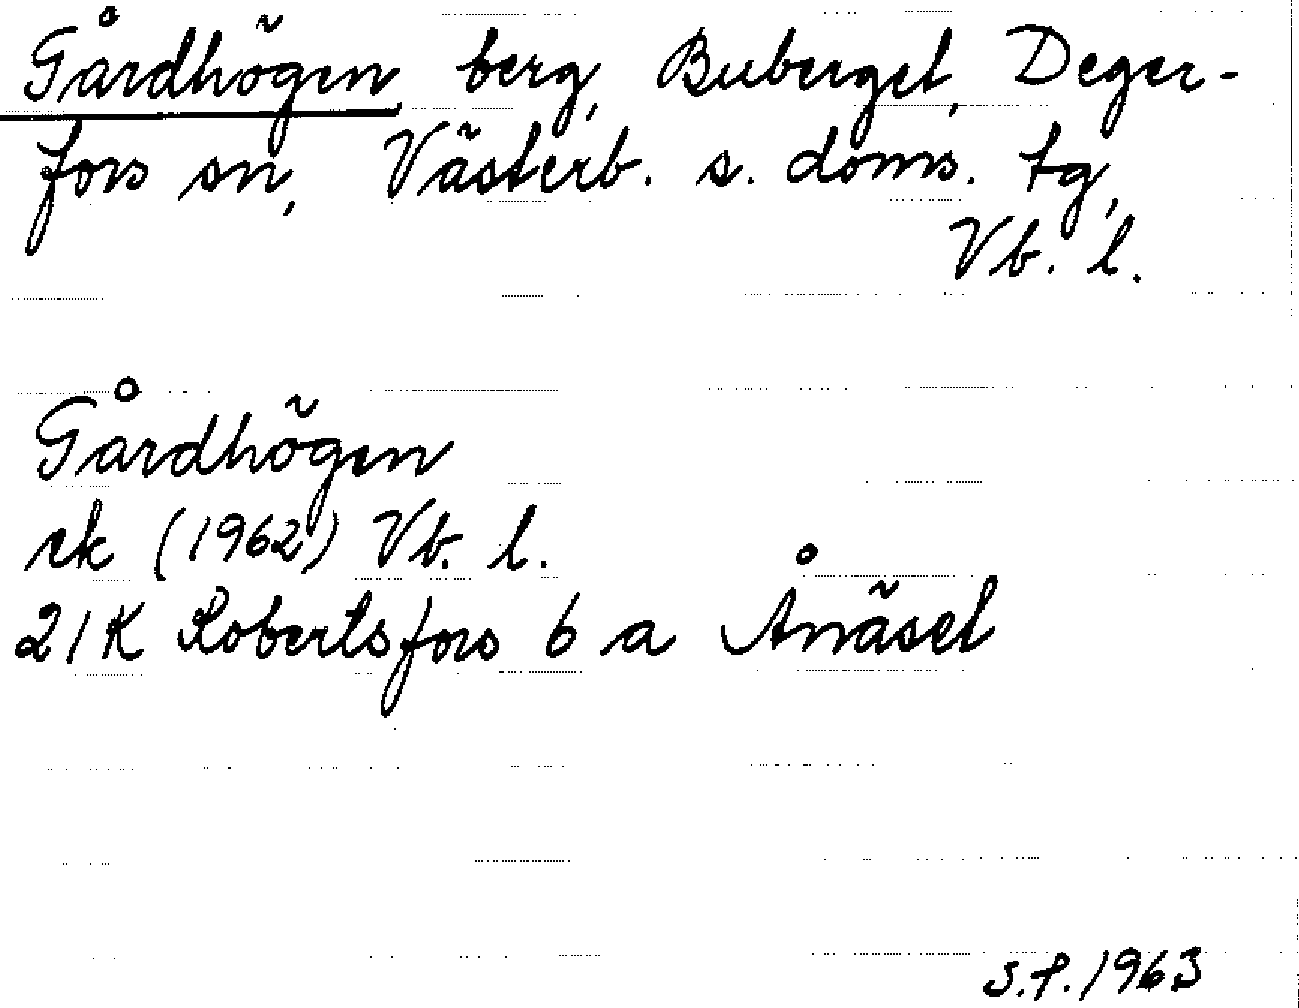 Gårdhögen, berg, Buberget, Deger-
fors sn, Västerb. s. doms. tg,
Vb. l.
Gårdhögen
ek (1962) Vb. l.
21K Robertsfors 6 a Ånäset
S.P. 1963